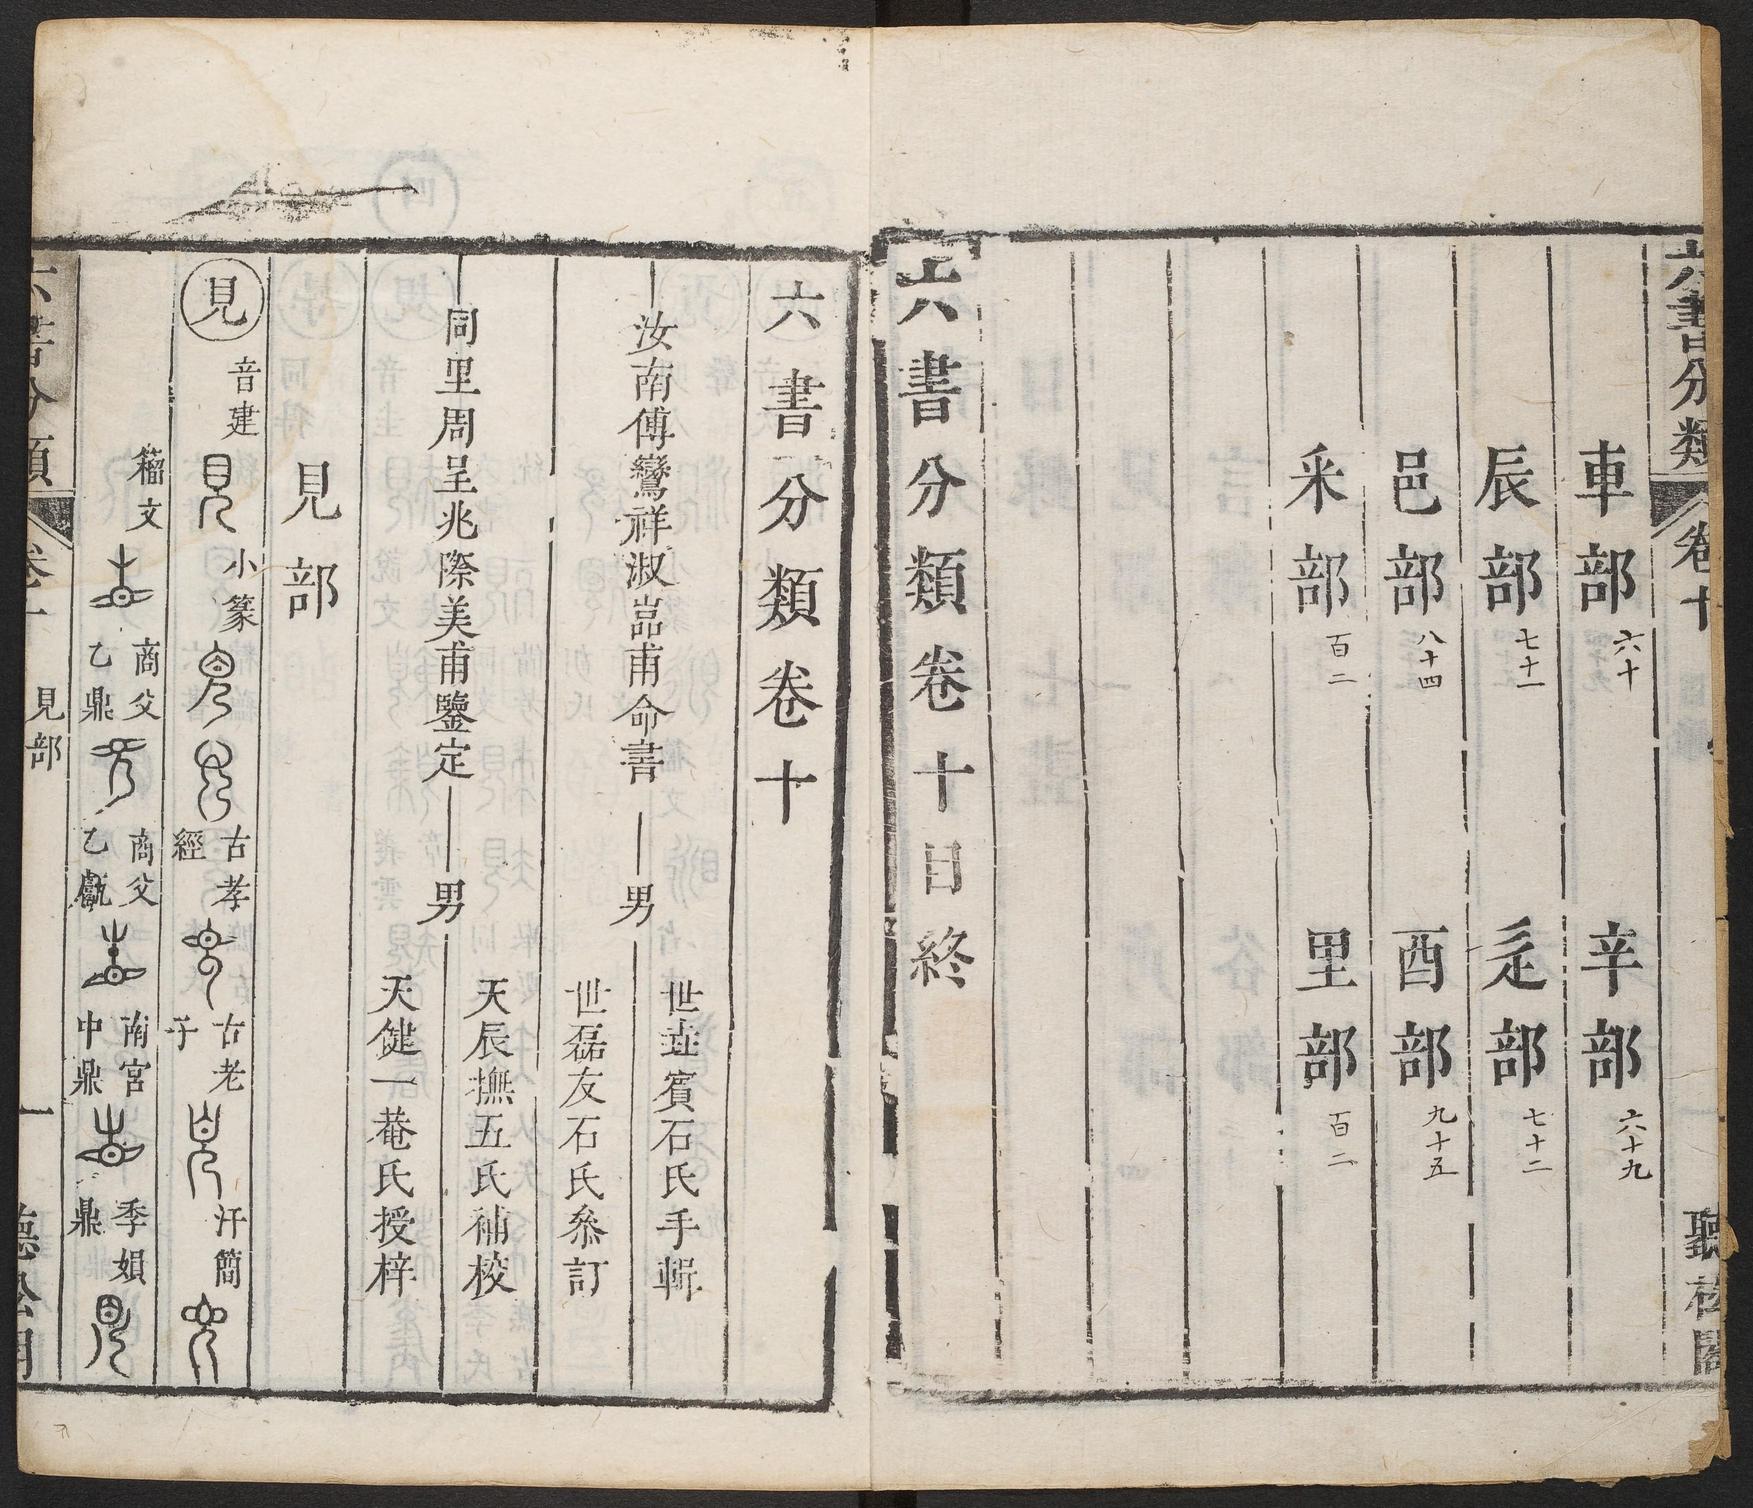 六書分類 卷十
聽松閣
車部 六十 辛部 六十九
辰部 七十一 辵部 七十二
邑部 八十四 酉部 九十五
釆部 百二 里部 百二
六書分類卷十目終
六書分類卷十
汝南傅鸞祥淑嵓甫命書 男
世垚賓石氏手輯
世磊友石氏叅訂
同里周呈兆際美甫鑒定 男
天辰撫五氏補校
天健一菴氏授梓
見部
見 音建 小篆 古孝經 古老子 汗簡
籀文 商父乙鼎 商父乙甗 南宮中鼎 季娟鼎
六書分類 卷十 見部 一 聽松閣